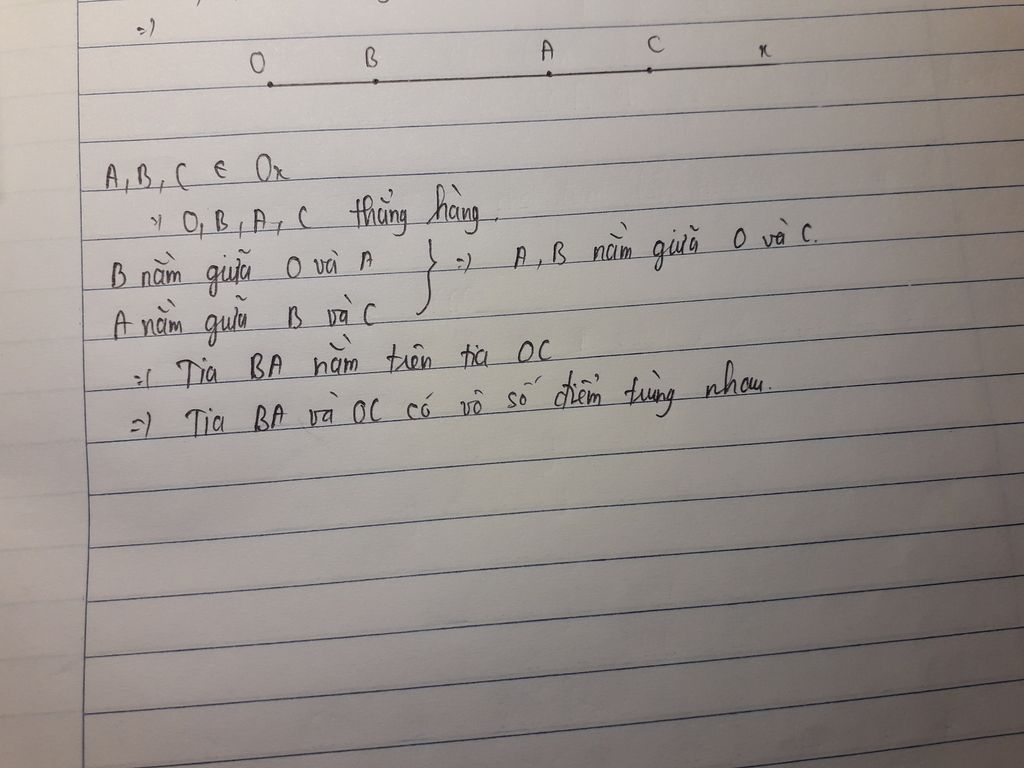 =)
O B A C x
A, B, C ∈ Ox
=) O, B, A, C thẳng hàng.
B nằm giữa O và A } =) A, B nằm giữa O và C.
A nằm giữa B và C
=) Tia BA nằm trên tia OC
=) Tia BA và OC có vô số điểm trùng nhau.